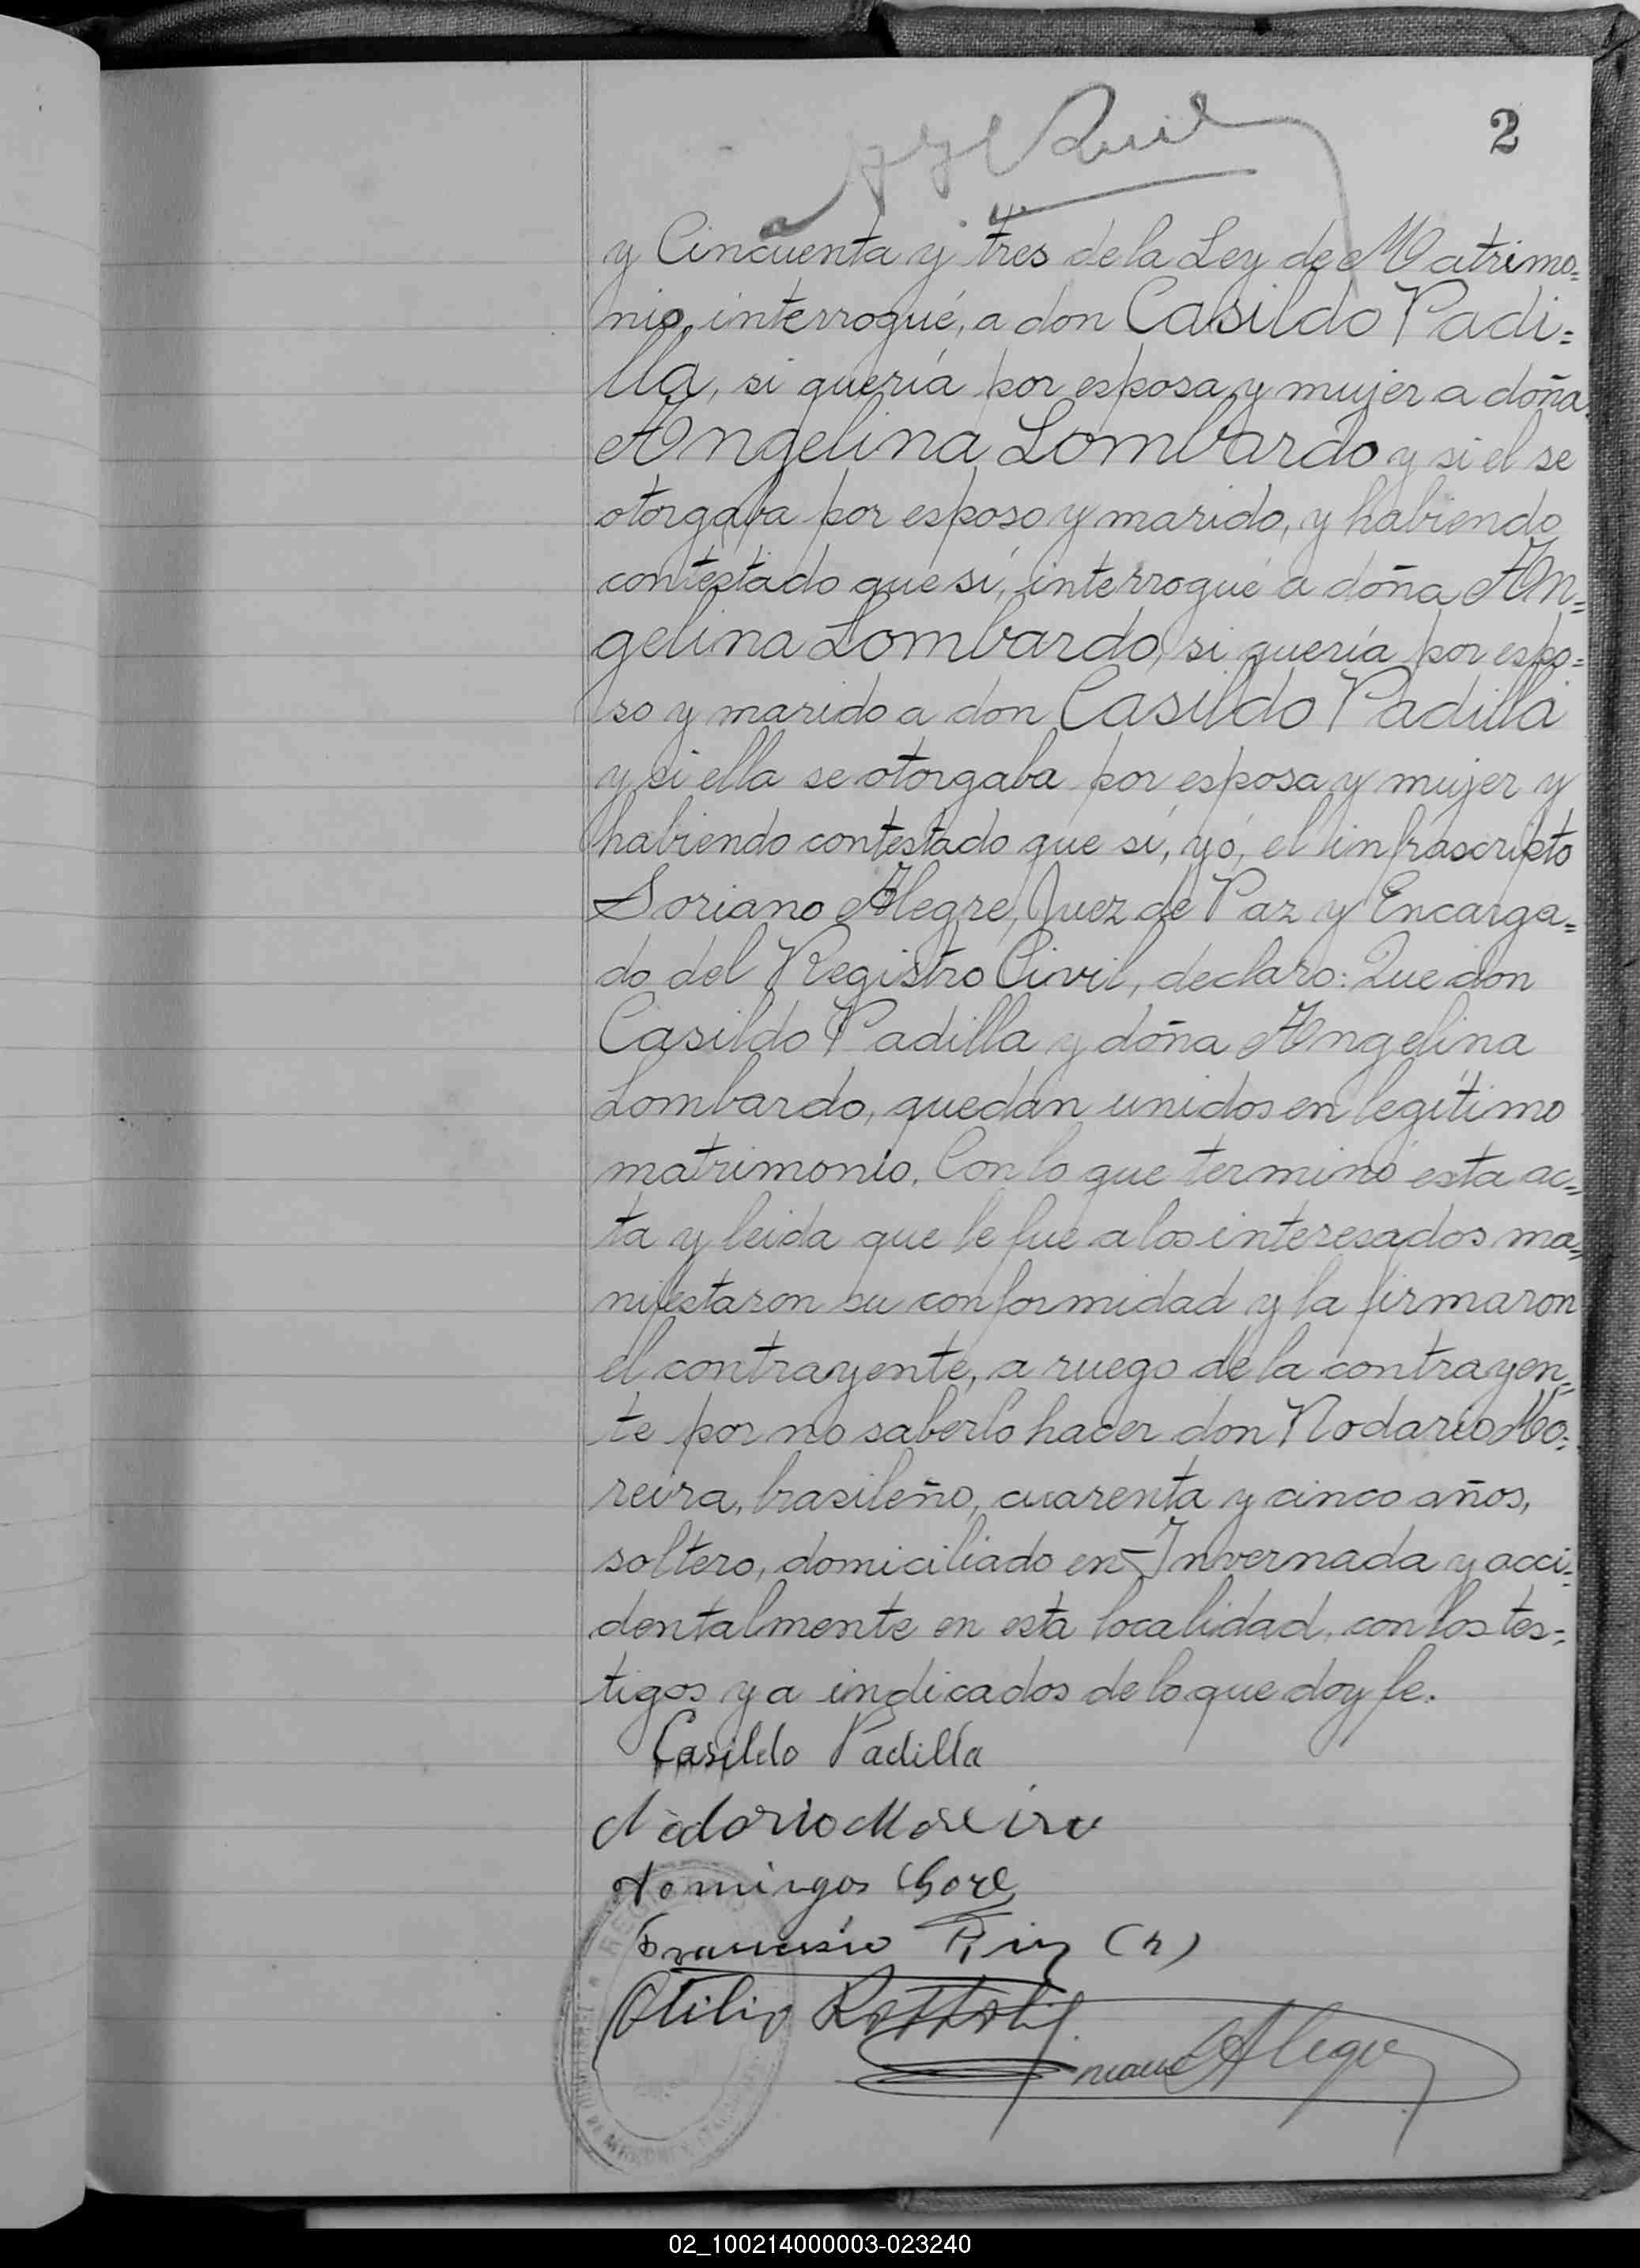 2
y Cincuenta y tres de la Ley de Matrimo=
nio, interrogué, a don Casildo Padi=
lla, si quería por esposa y mujer a doña
Angelina Lombardo y si el se
otorgaba por esposo y marido, y habiendo
contestado que sí, interrogué a doña An=
gelina Lombardo, si quería por espo=
so y marido a don Casildo Padilla
y si ella se otorgaba por esposa y mujer y
habiendo contestado que sí, yó, el infrascripto
Soriano Alegre, Juez de Paz y Encarga=
do del Registro Civil, declaro: Que don
Casildo Padilla y doña Angelina
Lombardo, quedan unidos en legítimo
matrimonio. Con lo que terminó esta ac=
ta y leida que le fue a los interesados ma=
nifestaron su conformidad y la firmaron
el contrayente, a ruego de la contrayen=
te por no saberlo hacer don Nodario Mo=
reira, brasileño, cuarenta y cinco años,
soltero, domiciliado en Invernada y acci=
dentalmente en esta localidad, con los tes=
tigos ya indicados de lo que doy fe.
Casildo Padilla
Nodario Moreira
Domingos
Francisco Ruiz (h)
Otilio
Alegre
02_100214000003-023240